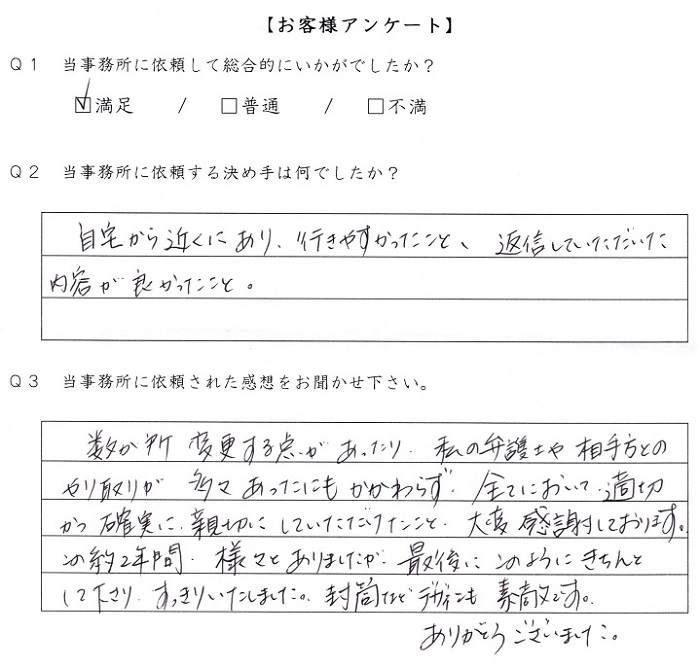 【お客様アンケート】
Ｑ１　当事務所に依頼して総合的にいかがでしたか？
☑満足　／　□普通　／　□不満
Ｑ２　当事務所に依頼する決め手は何でしたか？
自宅から近くにあり、行きやすかったこと、返信していただいた
内容が良かったこと。
Ｑ３　当事務所に依頼された感想をお聞かせ下さい。
数か所変更する点があったり、私の弁護士や相手方との
やり取りが多々あったにもかかわらず、全てにおいて、適切
かつ確実に、親切にしていただけたこと、大変感謝しております。
この約2年間、様々とありましたが、最後にこのようにきちんと
して下さり、すっきりいたしました。封筒などデザインも素敵です。
ありがとうございました。